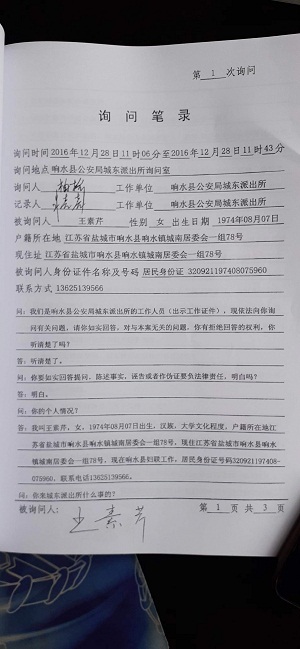 第 1 次询问
询 问 笔 录
询问时间 2016年12月28日11时06分至2016年12月28日11时43分
询问地点 响水县公安局城东派出所询问室
询问人 工作单位 响水县公安局城东派出所
记录人 工作单位 响水县公安局城东派出所
被询问人 王素芹 性别 女 出生日期 1974年08月07日
户籍所在地 江苏省盐城市响水县响水镇城南居委会一组78号
现住址 江苏省盐城市响水县响水镇城南居委会一组78号
被询问人身份证件名称及号码 居民身份证 320921197408075960
联系方式 13625139566
问：我们是响水县公安局城东派出所的工作人员（出示工作证件），现依法向你询
问有关问题，请你如实回答，对与本案无关的问题，你有拒绝回答的权利，你
听清楚了吗？
答：听清楚了。
问：你要如实回答提问，陈述事实，诬告或者作伪证要负法律责任，明白吗？
答：明白。
问：你的个人情况？
答：我叫王素芹，女，1974年08月07日出生，汉族，大学文化程度，户籍所在地江
苏省盐城市响水县响水镇城南居委会一组78号，现住江苏省盐城市响水县响水
镇城南居委会一组78号，现在响水县妇联工作，居民身份证号码320921197408-
075960，联系电话13625139566。
问：你来城东派出所什么事的？
被询问人： 王素芹
第 1 页 共 3 页